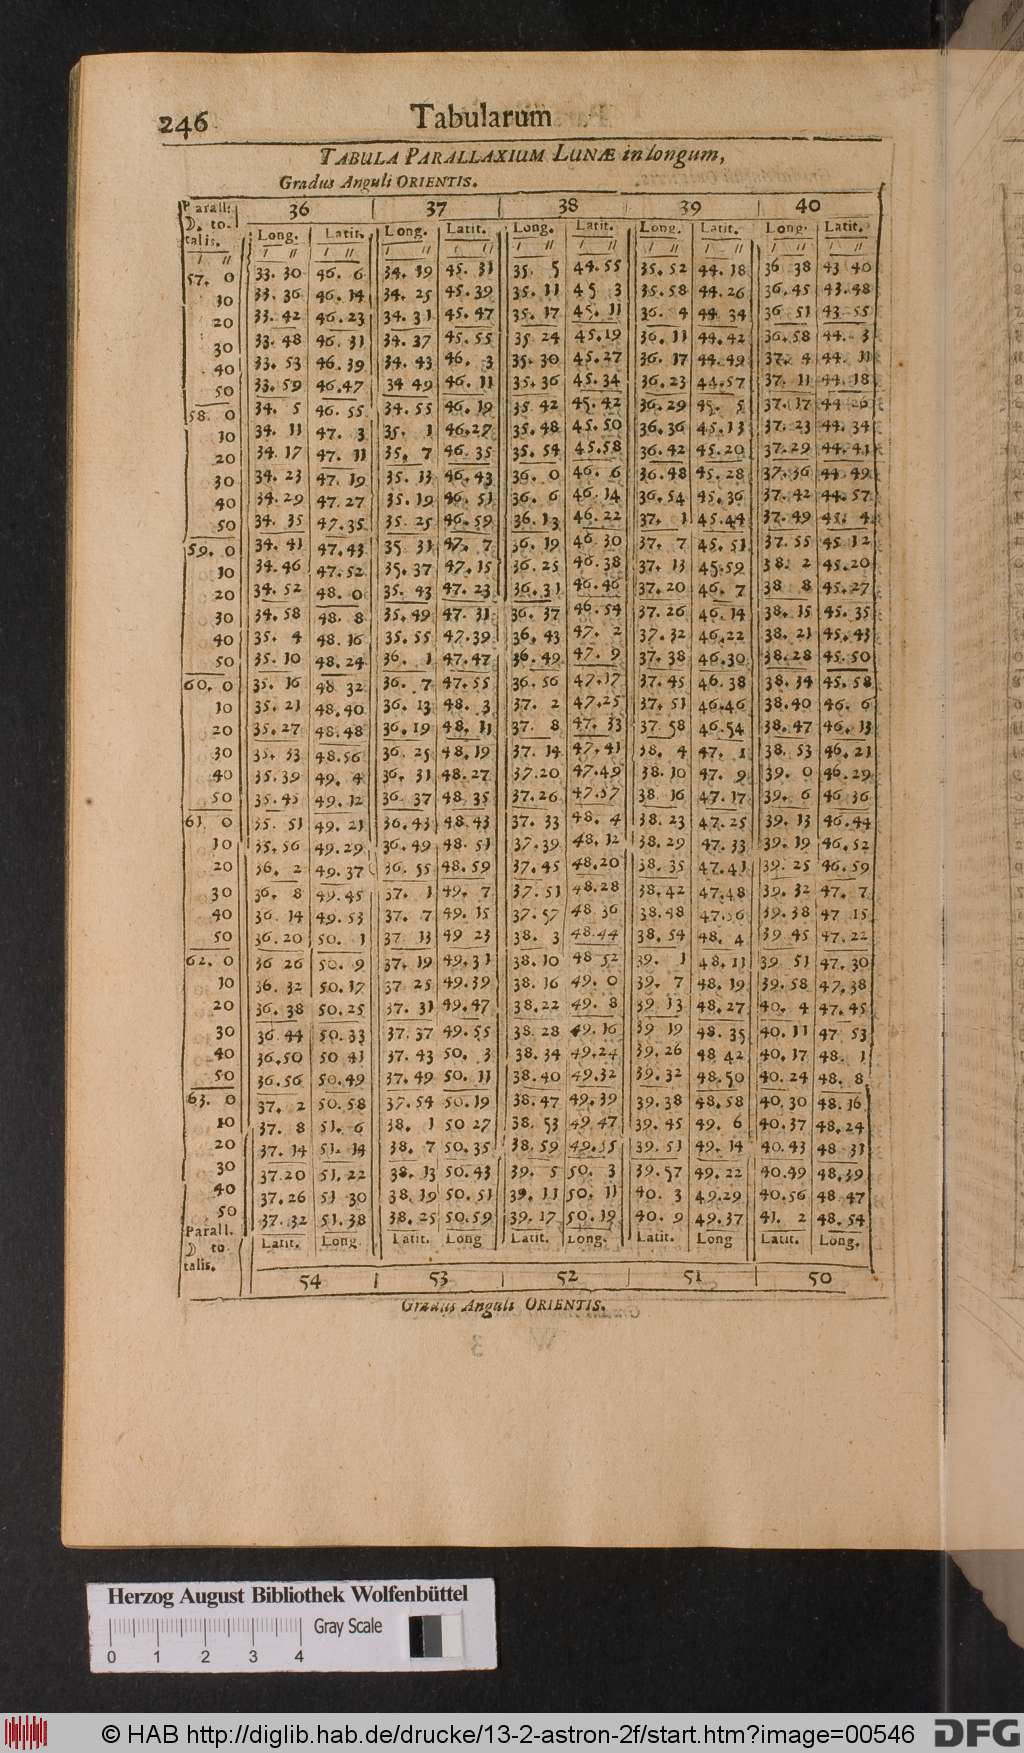 246 Tabularum
TABULA PARALLAXIUM LUNÆ in longum,
Gradus Anguli ORIENTIS.
Parall: 36 37 38 39 40
☽. to- Long. Latit. Long. Latit. Long. Latit. Long. Latit. Long. Latit.
talis. ' '' ' '' ' '' ' '' ' '' ' '' ' '' ' '' ' '' ' ''
57. 0 33. 30 46. 6 34. 19 45. 31 35. 5 44.55 35. 52 44. 18 36 38 43 40
10 33. 36 46. 14 34. 25 45.39 35. 11 45 3 35.58 44.26 36.45 43.48
20 33. 42 46.23 34.31 45.47 35. 17 45. 11 36. 4 44 34 36 51 43 55
30 33. 48 46. 31 34. 37 45.55 35 24 45.19 36.11 44.42 36.58 44. 3
40 33. 53 46.39 34. 43 46. 3 35.30 45.27 36. 17 44.49 37. 4 44. 11
50 33. 59 46.47 34 49 46. 11 35. 36 45.34 36.23 44.57 37. 11 44.18
58. 0 34. 5 46. 55 34. 55 46. 19 35 42 45.42 36.29 45. 5 37.17 44 26
10 34. 11 47. 3 35. 1 46.27 35.48 45.50 36.36 45.13 37. 23 44. 34
20 34. 17 47. 11 35. 7 46 35 35. 54 45.58 36.42 45.20 37.29 44.41
30 34. 23 47. 19 35. 13 46.43 36. 0 46. 6 36.48 45.28 37.36 44 49
40 34.29 47.27 35.19 46. 51 36. 6 46.14 36.54 45.36 37.42 44.57
50 34. 35 47.35 35. 25 46.59 36.13 46.22 37. 1 45.44 37.49 45. 4
59. 0 34. 41 47.43 35 31 47. 7 36. 19 46 30 37. 7 45. 51 37.55 45 12
10 34.46 47.52 35.37 47.15 36.25 46.38 37. 13 45.59 38. 2 45.20
20 34. 52 48. 0 35. 43 47. 23 36.31 46.46 37.20 46. 7 38 8 45.27
30 34.58 48. 8 35.49 47. 31 36. 37 46.54 37.26 46.14 38. 15 45. 35
40 35. 4 48.16 35.55 47.39 36. 43 47. 2 37.32 46.22 38. 21 45.43
50 35.10 48.24 36. 1 47.47 36.49 47. 9 37.38 46.30 38.28 45.50
60. 0 35. 16 48 32 36. 7 47.55 36.56 47.17 37.45 46.38 38.34 45.58
10 35.21 48.40 36.13 48. 3 37. 2 47.25 37.51 46.46 38.40 46. 6
20 35.27 48.48 36.19 48. 11 37. 8 47. 33 37.58 46.54 38.47 46.13
30 35. 33 48.56 36 25 48.19 37. 14 47.41 38. 4 47. 1 38. 53 46.21
40 35.39 49. 4 36. 31 48.27 37.20 47.49 38.10 47. 9 39. 0 46.29
50 35.45 49.12 36. 37 48 35 37.26 47.57 38 16 47.17 39. 6 46 36
61. 0 35. 51 49. 21 36.43 48.43 37. 33 48. 4 38.23 47.25 39. 13 46.44
10 35.56 49.29 36.49 48. 51 37.39 48. 12 38.29 47.33 39.19 46.52
20 36. 2 49.37 36 55 48.59 37.45 48.20 38. 35 47.41 39. 25 46.59
30 36. 8 49.45 37. 1 49. 7 37.51 48.28 38.42 47.48 39. 32 47. 7
40 36 14 49.53 37. 7 49. 15 37.57 48 36 38.48 47.56 39.38 47 15
50 36.20 50. 1 37. 13 49 23 38. 3 48.44 38. 54 48. 4 39 45 47.22
62. 0 36 26 50. 9 37. 19 49.31 38.10 48 52 39. 1 48.11 39 51 47.30
10 36. 32 50.17 37 25 49.39 38. 16 49. 0 39. 7 48. 19 39.58 47.38
20 36. 38 50.25 37. 31 49.47 38.22 49. 8 39. 13 48.27 40. 4 47.45
30 36 44 50.33 37. 37 49.55 38. 28 49.16 39 19 48. 35 40.11 47 53
40 36.50 50 41 37. 43 50. 3 38. 34 49.24 39. 26 48 42 40.17 48. 1
50 36.56 50.49 37.49 50. 11 38.40 49.32 39. 32 48.50 40. 24 48. 8
63. 0 37. 2 50.58 37.54 50.19 38.47 49.39 39.38 48.58 40.30 48.16
10 37. 8 51. 6 38. 1 50 27 38. 53 49.47 39.45 49. 6 40.37 48.24
20 37. 14 51. 14 38. 7 50.35 38. 59 49.55 39.51 49. 14 40.43 48 31
30 37.20 51.22 38. 13 50.43 39. 5 50. 3 39.57 49.22 40.49 48.39
40 37.26 51 30 38.19 50.51 39.11 50. 11 40. 3 49.29 40.56 48 47
50 37. 32 51.38 38.25 50.59 39. 17 50.19 40. 9 49.37 41. 2 48.54
Parall. Latit. Long. Latit. Long Latit. Long. Latit. Long Latit. Long.
☽ to-
talis. 54 53 52 51 50
Gradus Anguli ORIENTIS.
Herzog August Bibliothek Wolfenbüttel
Gray Scale
0 1 2 3 4
© HAB http://diglib.hab.de/drucke/13-2-astron-2f/start.htm?image=00546 DFG